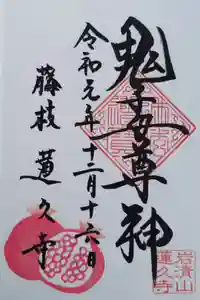 鬼子母尊神
令和元年十二月十六日
藤枝 蓮久寺
岩漬山
蓮久寺